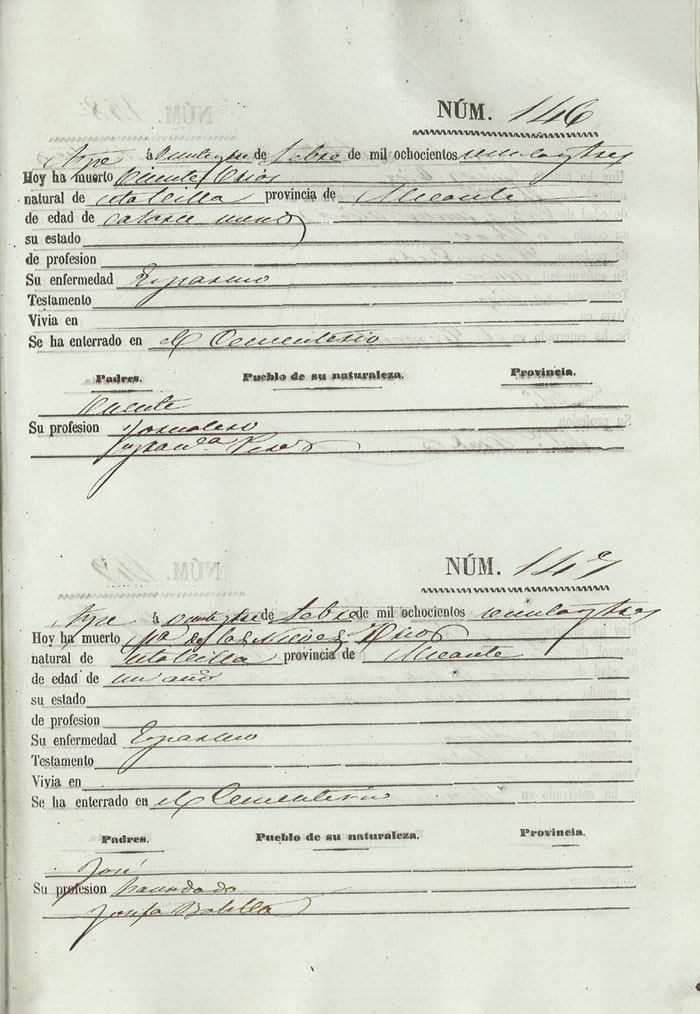 NÚM. 146
Aspe á veintiseis de Febro de mil ochocientos
Hoy ha muerto Vicente
natural de esta Villa provincia de Alicante
de edad de catorce meses
su estado
de profesion
Su enfermedad Espasmo
Testamento
Vivia en
Se ha enterrado en el Cementerio
Padres. Pueblo de su naturaleza. Provincia.
Vicente
Su profesion Jornalero
NÚM. 147
Aspe á de Febro de mil ochocientos
Hoy ha muerto Mª de las Nieves
natural de esta Villa provincia de Alicante
de edad de un año
su estado
de profesion
Su enfermedad Espasmo
Testamento
Vivia en
Se ha enterrado en el Cementerio
Padres. Pueblo de su naturaleza. Provincia.
José
Su profesion hacendado
Josefa Botella